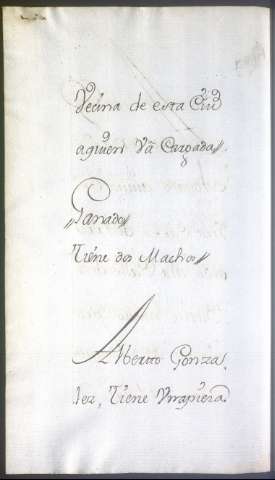 Vecina de esta Ciud
aquien Va Cargada
Ganado
Tiene dos Machos
Alberto Gonza
lez, Tiene